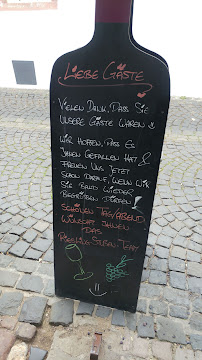 Liebe Gäste
Vielen Dank, dass Sie
unsere Gäste waren
Wir hoffen, dass es
Ihnen gefallen hat &
freuen uns jetzt
schon darauf, wenn wir
Sie bald wieder
begrüßen dürfen!
Schönen Tag/Abend
wünscht Ihnen
das
Team